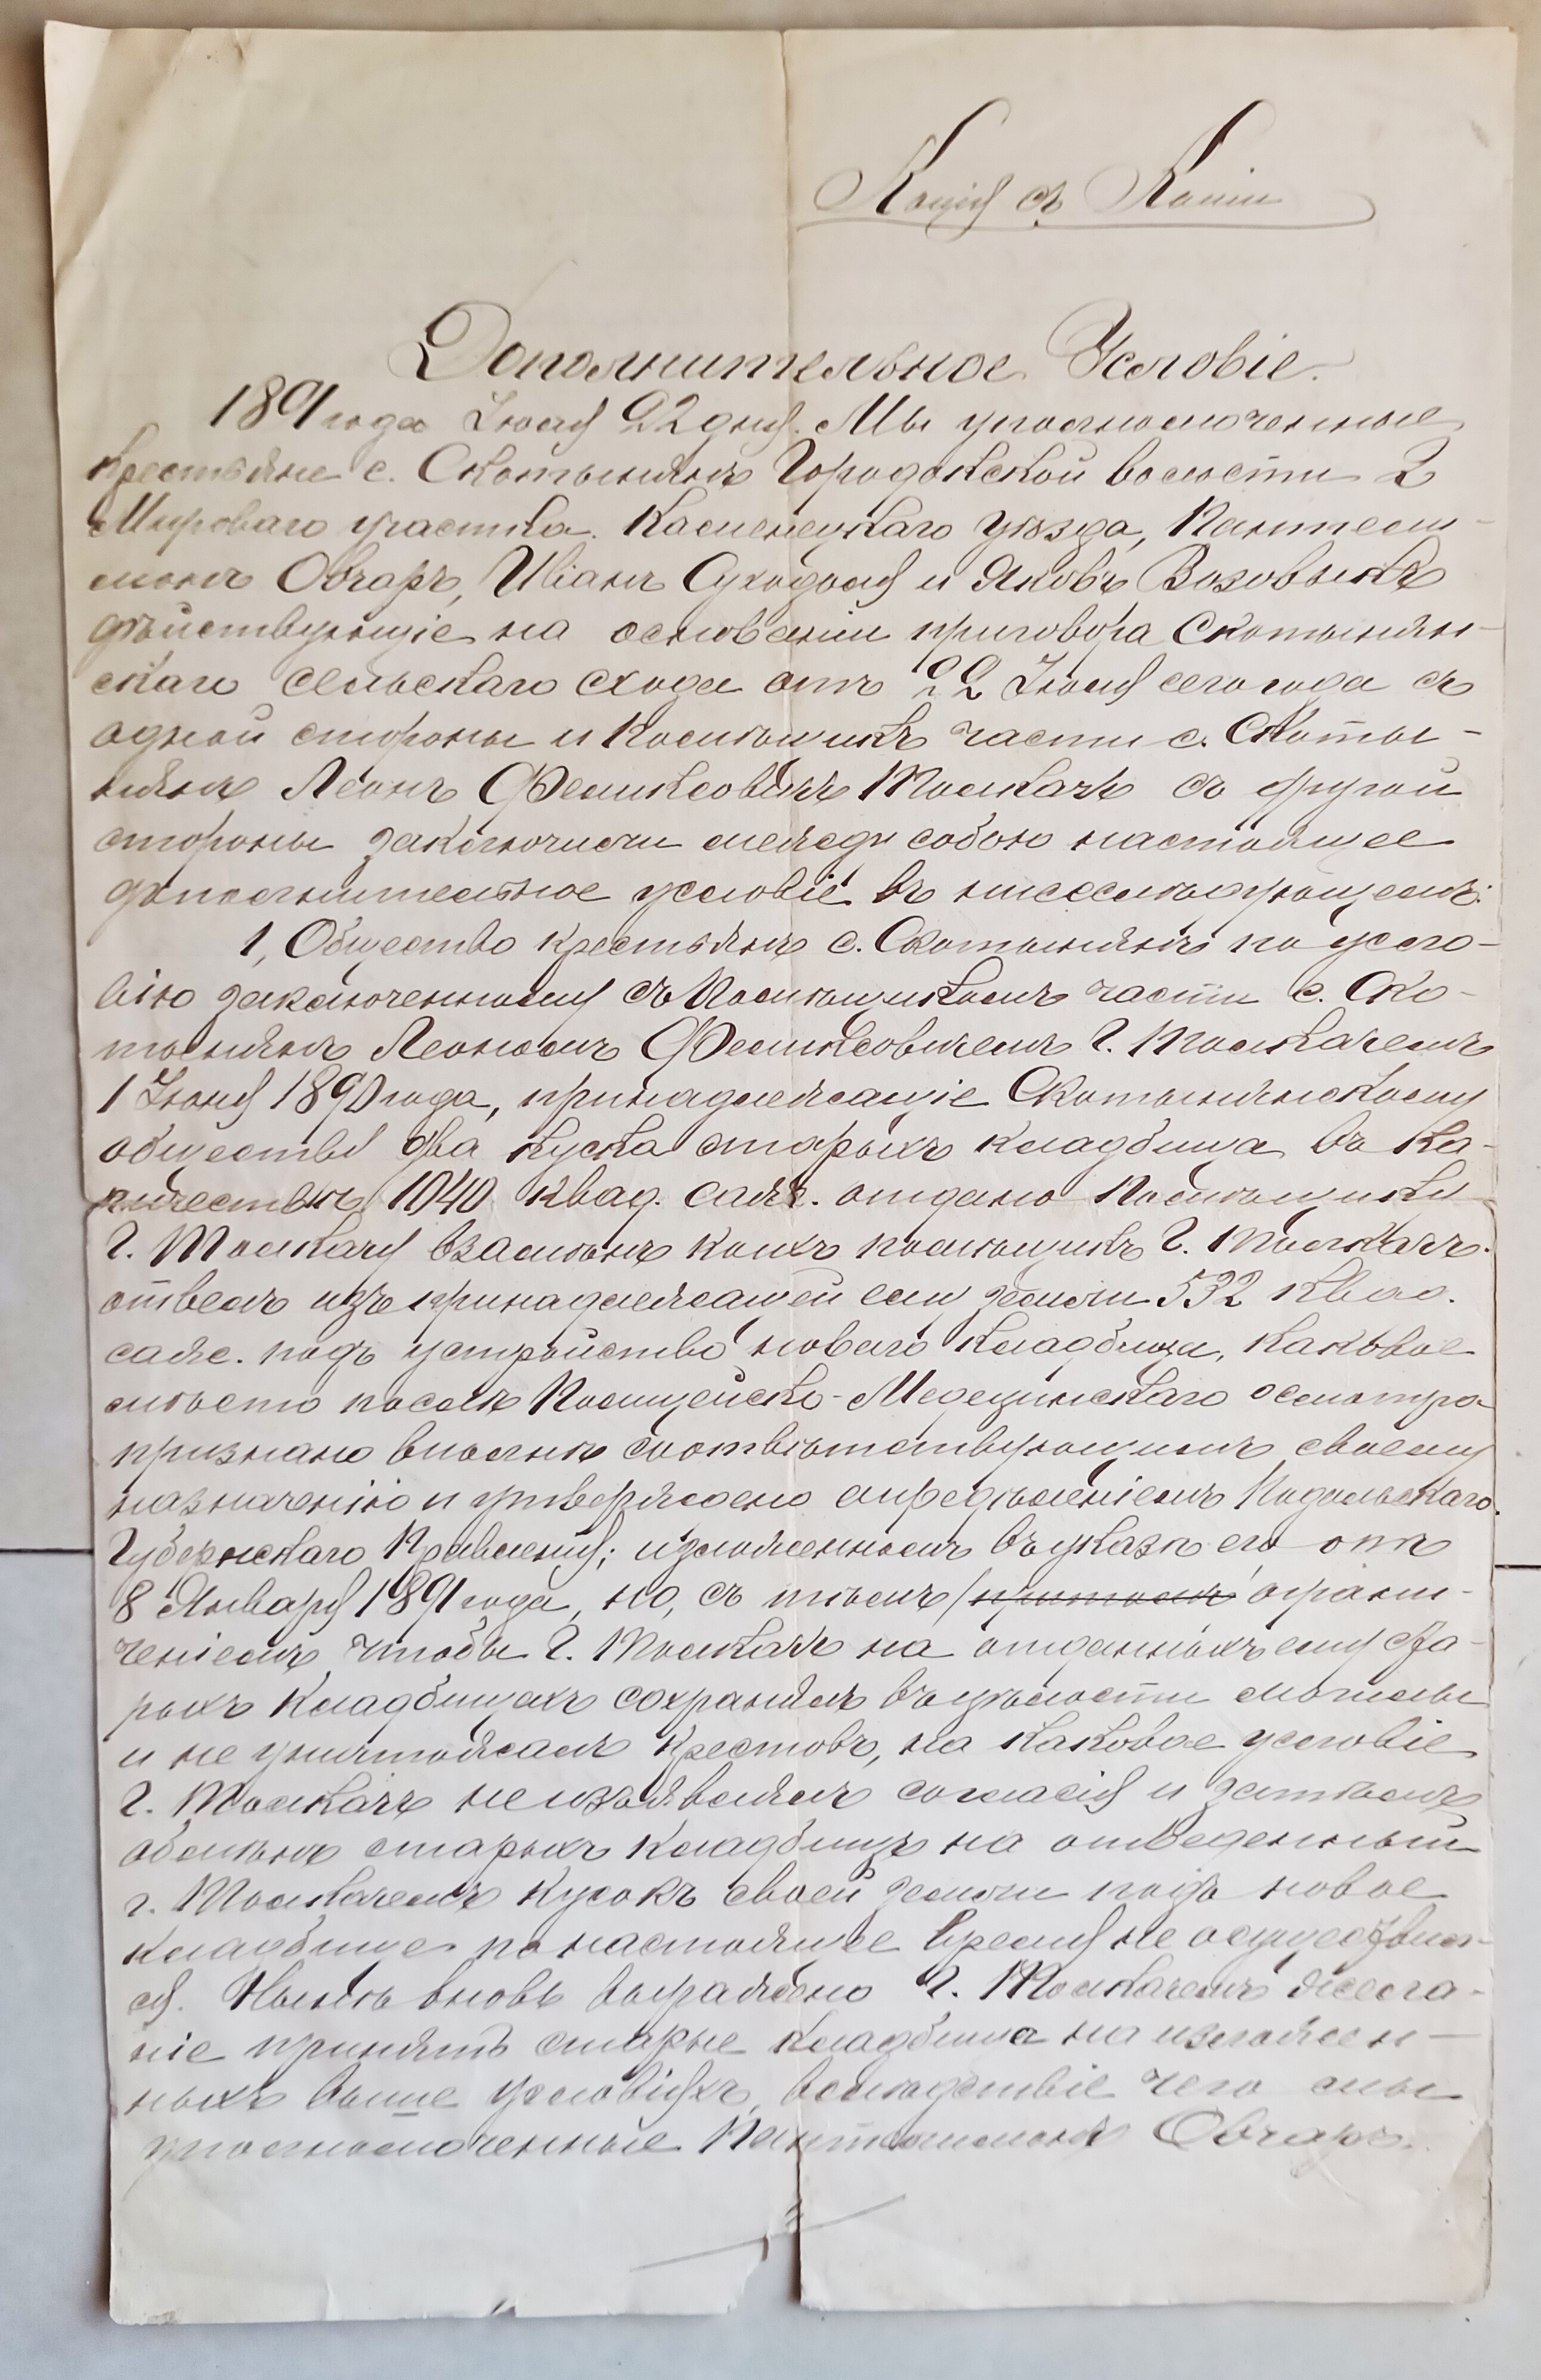 Копія съ Копіи
Дополнительное Условіе.
1891 года Іюля 22 дня. Мы уполномоченные
крестьяне с. Скотынянъ Городокской волости 2
Мироваго участка Каменецкаго уѣзда, Пантели-
монъ Овчаръ, Иванъ Суходоля и Яковъ Возовыкъ
дѣйствующіе на основаніи приговора Скотынян-
скаго сельскаго схода отъ 22 Іюля сего года съ
одной стороны и Помѣщикъ части с. Скоты-
нянъ Леонъ Феликсовичъ Толкачъ съ другой
стороны заключили между собою настоящее
дополнительное условіе въ нижеслѣдующемъ:
1, Общество крестьянъ с. Скотынянъ по усло-
вію заключенному съ Помѣщикомъ части с. Ско-
тынянъ Леономъ Феликсовичемъ Г. Толкачемъ
1 Іюня 1890 года, принадлежащіе Скотынянскому
обществу два куска старыхъ кладбища въ ко-
личествѣ 1040 квад. саж. отдано Помѣщику
Г. Толкачу взамѣнъ коихъ помѣщикъ Г. Толкачъ
отвелъ изъ принадлежащей ему земли 532 квад.
саж. подъ устройство новаго кладбища, каковое
мѣсто послѣ Полицейско-Медецинскаго осмотра
признано вполнѣ соотвѣтствующимъ своему
назначенію и утверждено опредѣленіемъ Подольскаго
Губернскаго Правленія; изложенномъ въ указѣ его отъ
8 Января 1891 года, но, съ тѣмъ ограни-
ченіемъ чтобы Г. Толкачъ на отданныхъ ему ста-
рыхъ кладбищахъ сохранялъ въ цѣлости могилы
и не уничтожалъ крестовъ, на каковое условіе
Г. Толкачъ не изъявлялъ согласія и затѣмъ
обмѣнъ старыхъ кладбищъ на отведенный
г. Толкачемъ кусокъ своей земли подъ новое
кладбище по настоящее время не осуществил-
ся. Нынѣ вновь выражено Г. Толкачемъ жела-
ніе принять старые кладбища на изложен-
ныхъ выше условіяхъ, вслѣдствіе чего мы
уполномоченные Пантелимонъ Овчаръ,